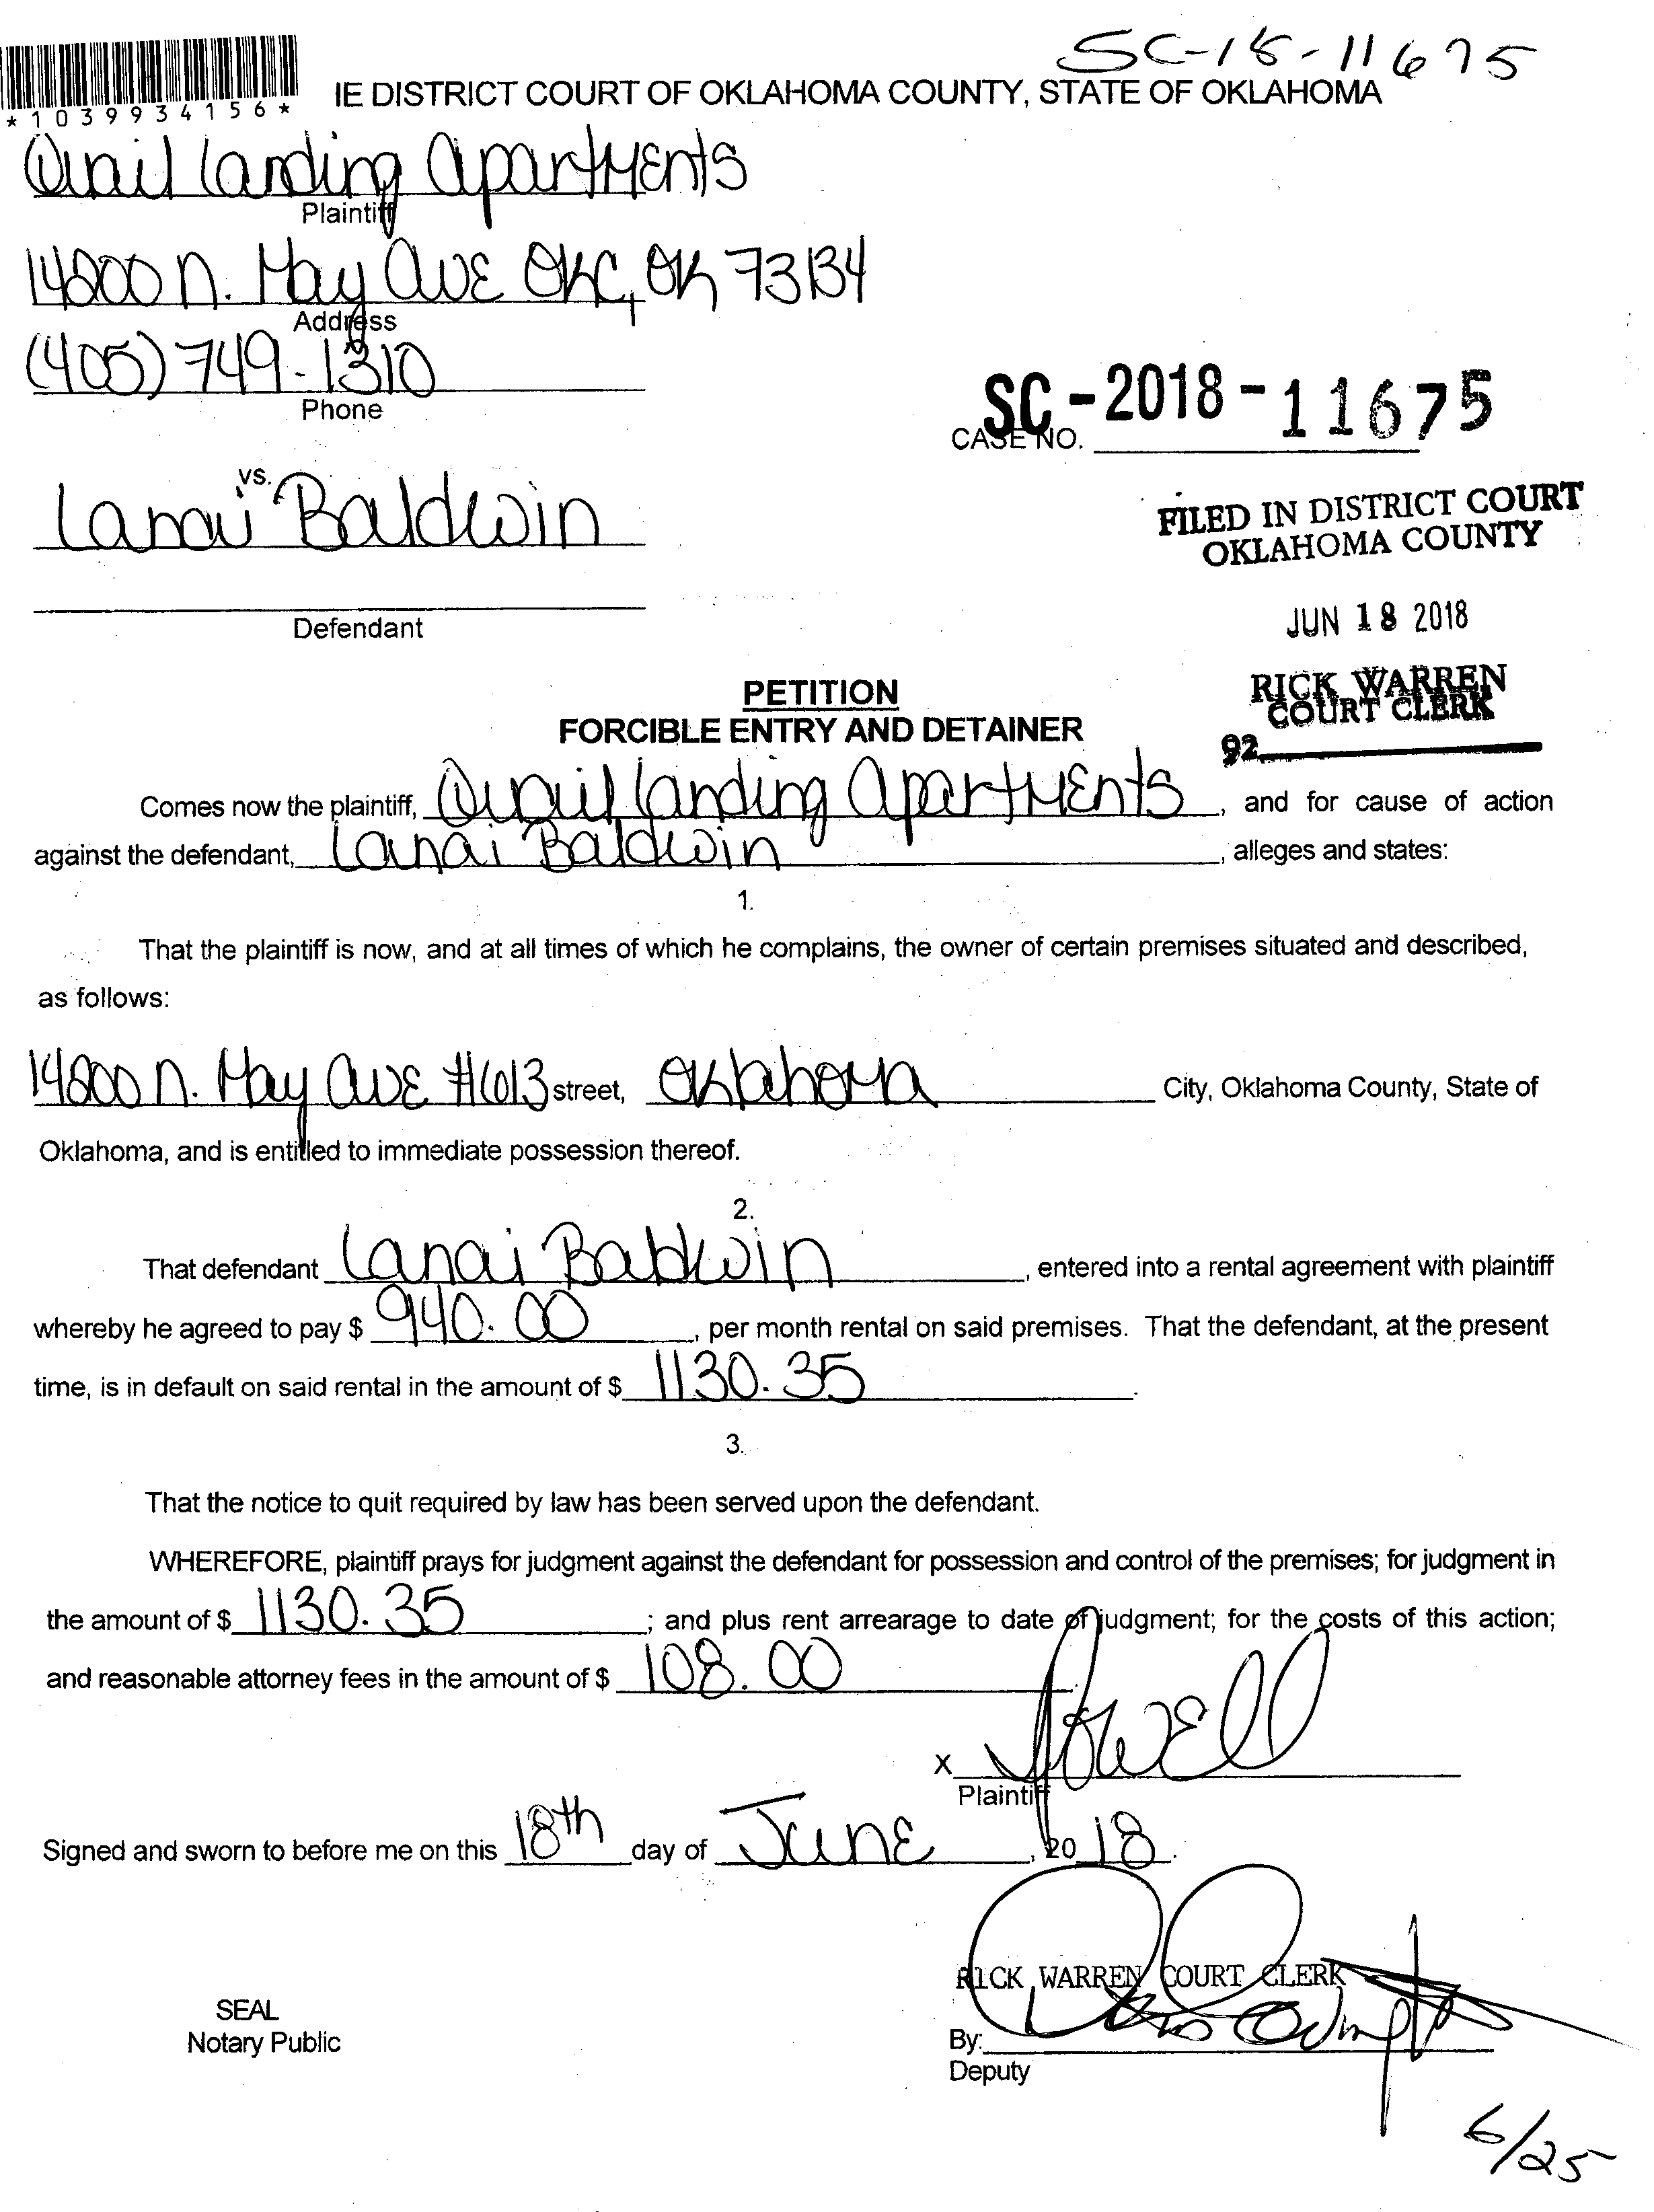 SC-18-11675
*1039934156*
IE DISTRICT COURT OF OKLAHOMA COUNTY, STATE OF OKLAHOMA
Quail Landing Apartments
Plaintiff
14200 N. May Ave OKC, OK 73134
Address
(405) 749-1310
Phone
SC-2018-11675
CASE NO.
vs.
Lanai Baldwin
FILED IN DISTRICT COURT
OKLAHOMA COUNTY
Defendant
JUN 18 2018
RICK WARREN
COURT CLERK
92
PETITION
FORCIBLE ENTRY AND DETAINER
Comes now the plaintiff, Quail Landing Apartments, and for cause of action
against the defendant, Lanai Baldwin, alleges and states:
1.
That the plaintiff is now, and at all times of which he complains, the owner of certain premises situated and described,
as follows:
14200 N. May Ave #1613 street, Oklahoma City, Oklahoma County, State of
Oklahoma, and is entitled to immediate possession thereof.
2.
That defendant Lanai Baldwin, entered into a rental agreement with plaintiff
whereby he agreed to pay $ 940.00, per month rental on said premises. That the defendant, at the present
time, is in default on said rental in the amount of $ 1130.35.
3.
That the notice to quit required by law has been served upon the defendant.
WHEREFORE, plaintiff prays for judgment against the defendant for possession and control of the premises; for judgment in
the amount of $ 1130.35; and plus rent arrearage to date of judgment; for the costs of this action;
and reasonable attorney fees in the amount of $ 108.00.
X Powell
Plaintiff
Signed and sworn to before me on this 18th day of June, 20 18.
RICK WARREN COURT CLERK
SEAL
Notary Public
By:
Deputy
6/25